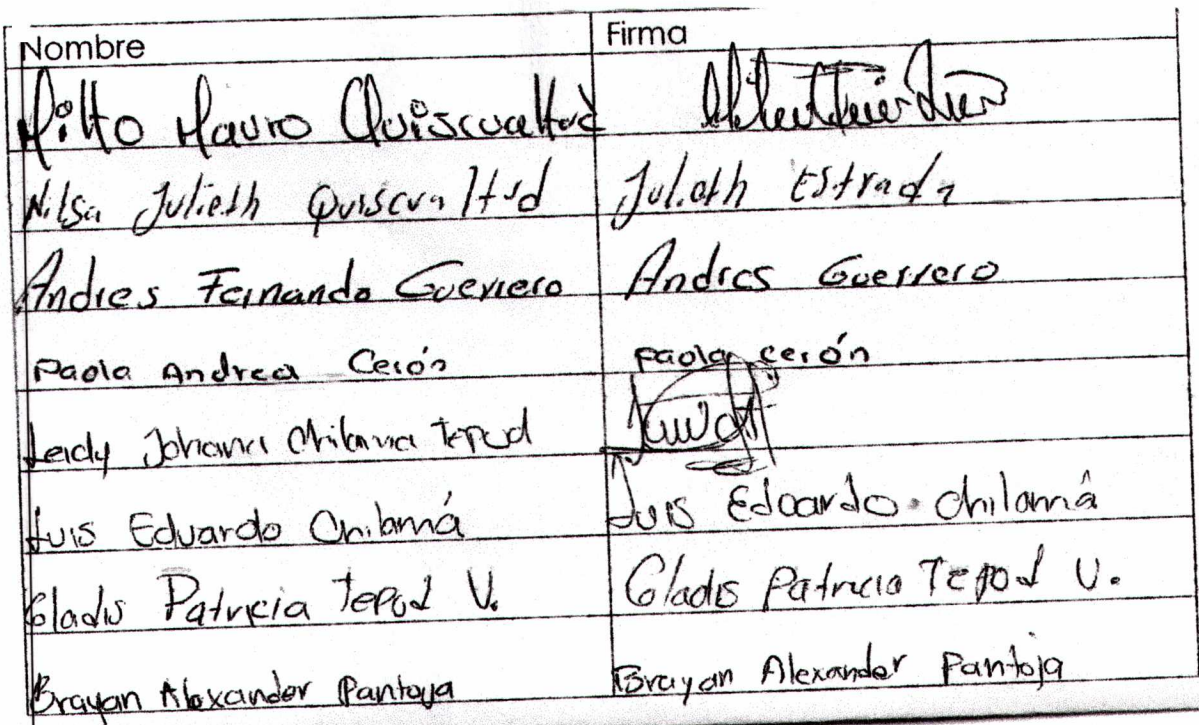 Nombre Firma
Milto Mauro Quiscualtud
Nilsa Julieth Quiscualtud Julieth Estrada
Andres Fernando Guerrero Andres Guerrero
Paola Andrea Cerón paola cerón
Leidy Johana Chilama Tepud
Luis Eduardo Chilamá Luis Eduardo Chilamá
Gladis Patricia Tepud V. Gladis Patricia Tepud V.
Brayan Alexander Pantoja Brayan Alexander Pantoja